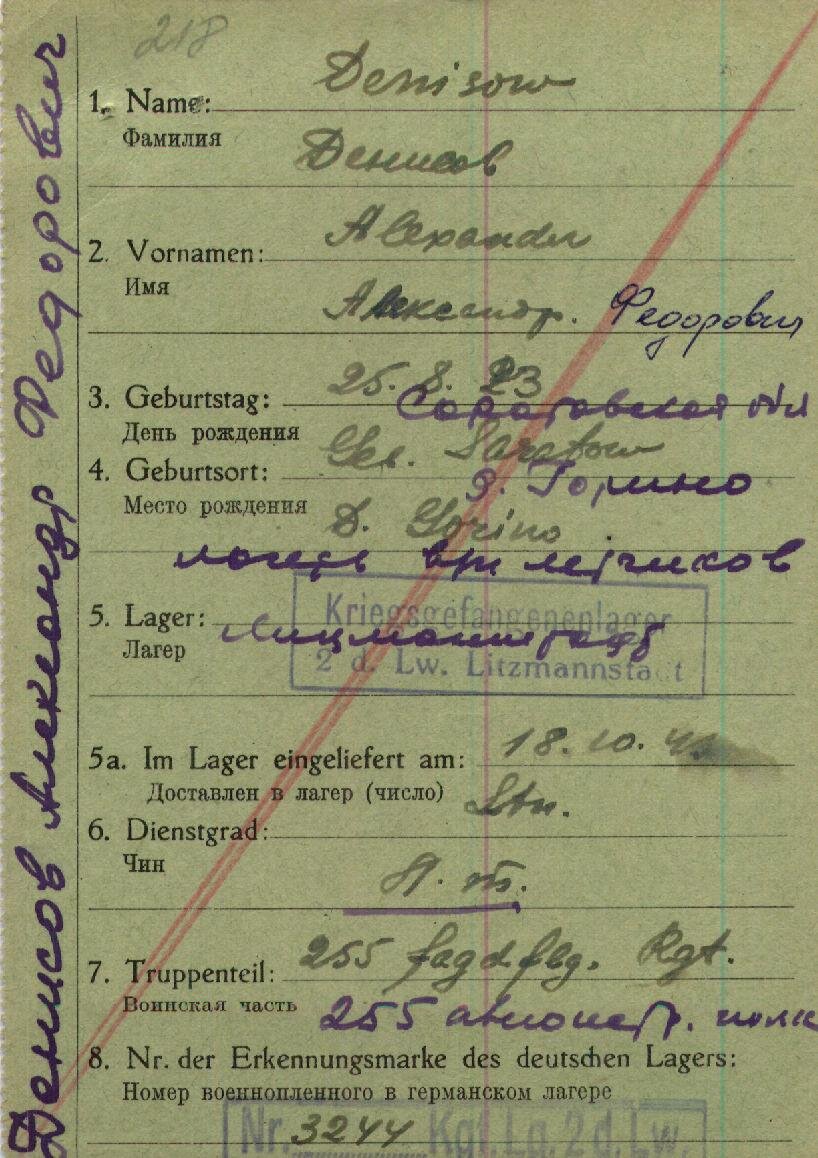 Денисов Александр Федорович
218
1. Name: Denisow
Фамилия Денисов
2. Vornamen: Alexander
Имя Александр. Федорович
3. Geburtstag: 25. 8. 23
День рождения Саратовская обл
4. Geburtsort: Geb. Saratow
Место рождения д. Горино
D. Gorino
лагерь в/пл летчиков
5. Lager: Kriegsgefangenenlager
Лагерь Лицманштадт
2 d. Lw. Litzmannstadt
5a. Im Lager eingeliefert am: 18. 10.
Доставлен в лагерь (число)
6. Dienstgrad: Ltn.
Чин
7. Truppenteil: 255 Jagdflg. Rgt.
Воинская часть 255 полк
8. Nr. der Erkennungsmarke des deutschen Lagers:
Номер военнопленного в германском лагере
Nr. 3244 Kgf. Lg. 2 d. Lw.